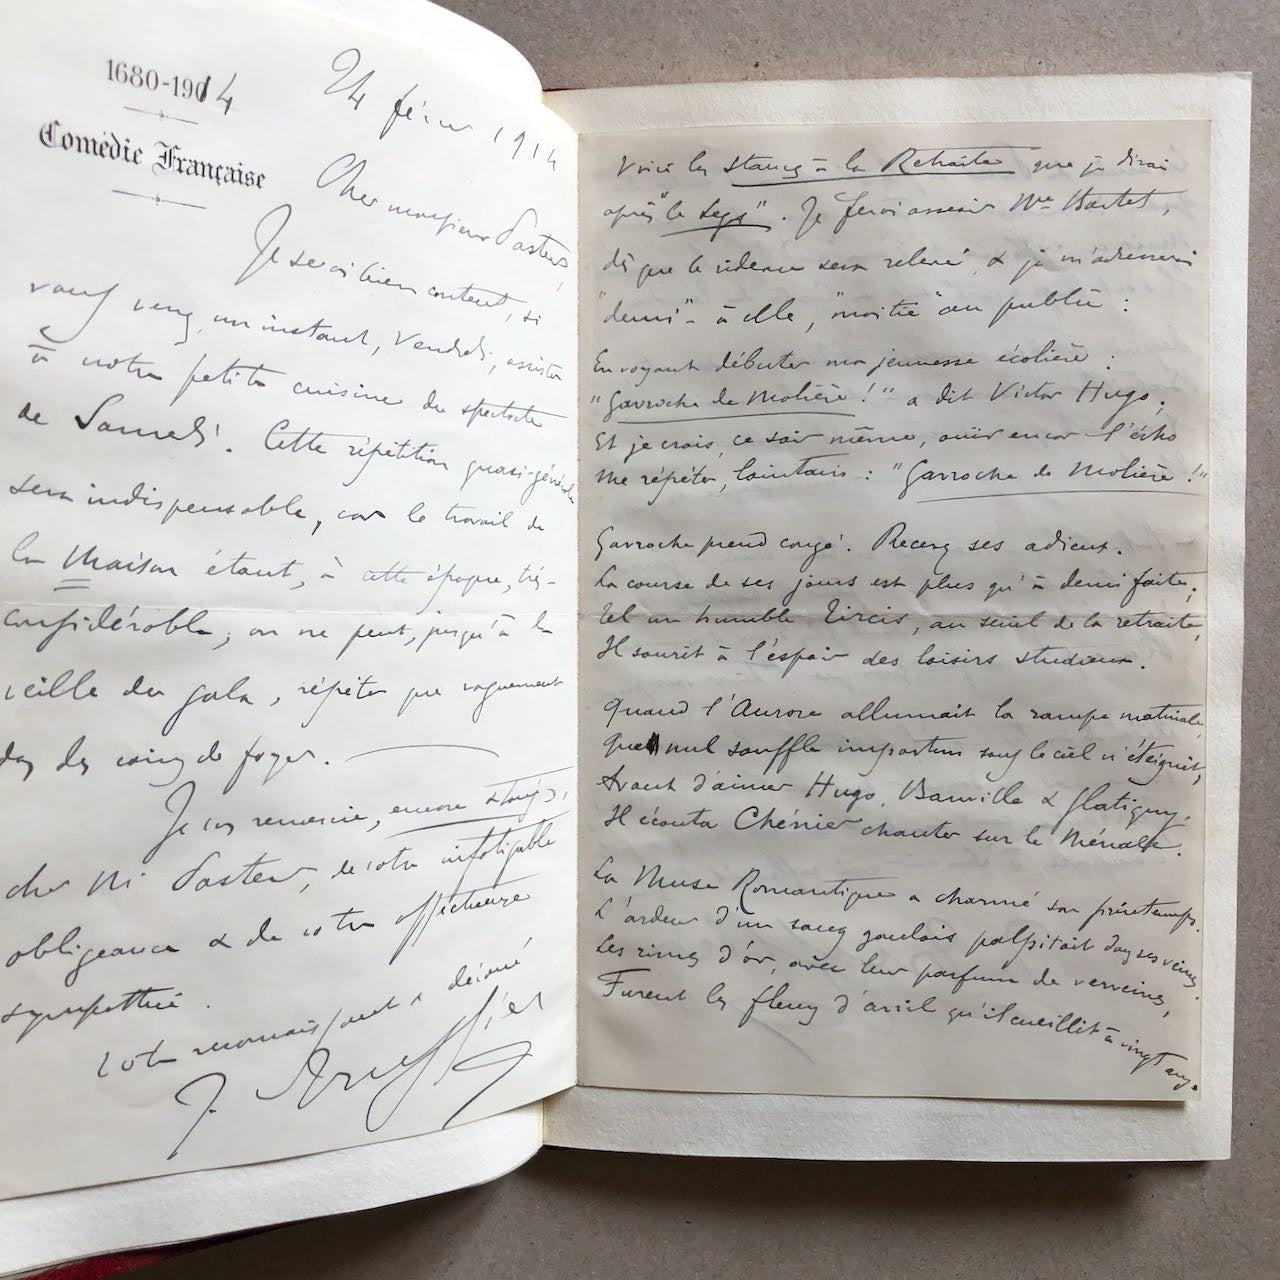 1680-1914
Comédie Française
24 février 1914
Cher monsieur Pasteur,
Je serai bien content, si
vous venez, un instant, Vendredi, assister
à notre petite cuisine du spectacle
de Samedi. Cette répétition quasi-générale
sera indispensable, car le travail de
la Maison étant, à cette époque, très-
considérable, on ne peut, jusqu'à la
veille du gala, répéter que vaguement
dans des coins de foyer.
Je vous remercie, encore
cher Mr Pasteur, de votre infatigable
obligeance & de votre affectueuse
sympathie.
Votre reconnaissant & dévoué
J. Truffier
Voici les Stances à la Retraite que je dirai
après "le Legs". Je ferai asseoir Me Bartet,
dès que le rideau sera relevé, & je m'adresserai
"demi" - à elle, "moitié" au public :
En voyant débuter ma jeunesse écolière :
"Gavroche de Molière !" a dit Victor Hugo ;
Et je crois, ce soir même, ouïr encor l'écho
Me répéter, lointain : "Gavroche de Molière !"
Gavroche prend congé. Recevez ses adieux.
La course de ses jours est plus qu'à demi faite ;
Tel un humble Tircis, au seuil de la retraite,
Il sourit à l'espoir des loisirs studieux.
Quand l'Aurore allumait la rampe matinale
Que nul souffle importun sous le ciel n'éteignit,
Avant d'aimer Hugo, Banville & Glatigny,
Il écouta Chénier chanter sur le Ménale.
La Muse Romantique a charmé son printemps.
L'ardeur d'un sang gaulois palpitait dans ses veines.
Les rimes d'or, avec leur parfum de verveines,
Furent les fleurs d'avril qu'il cueillit à vingt ans.